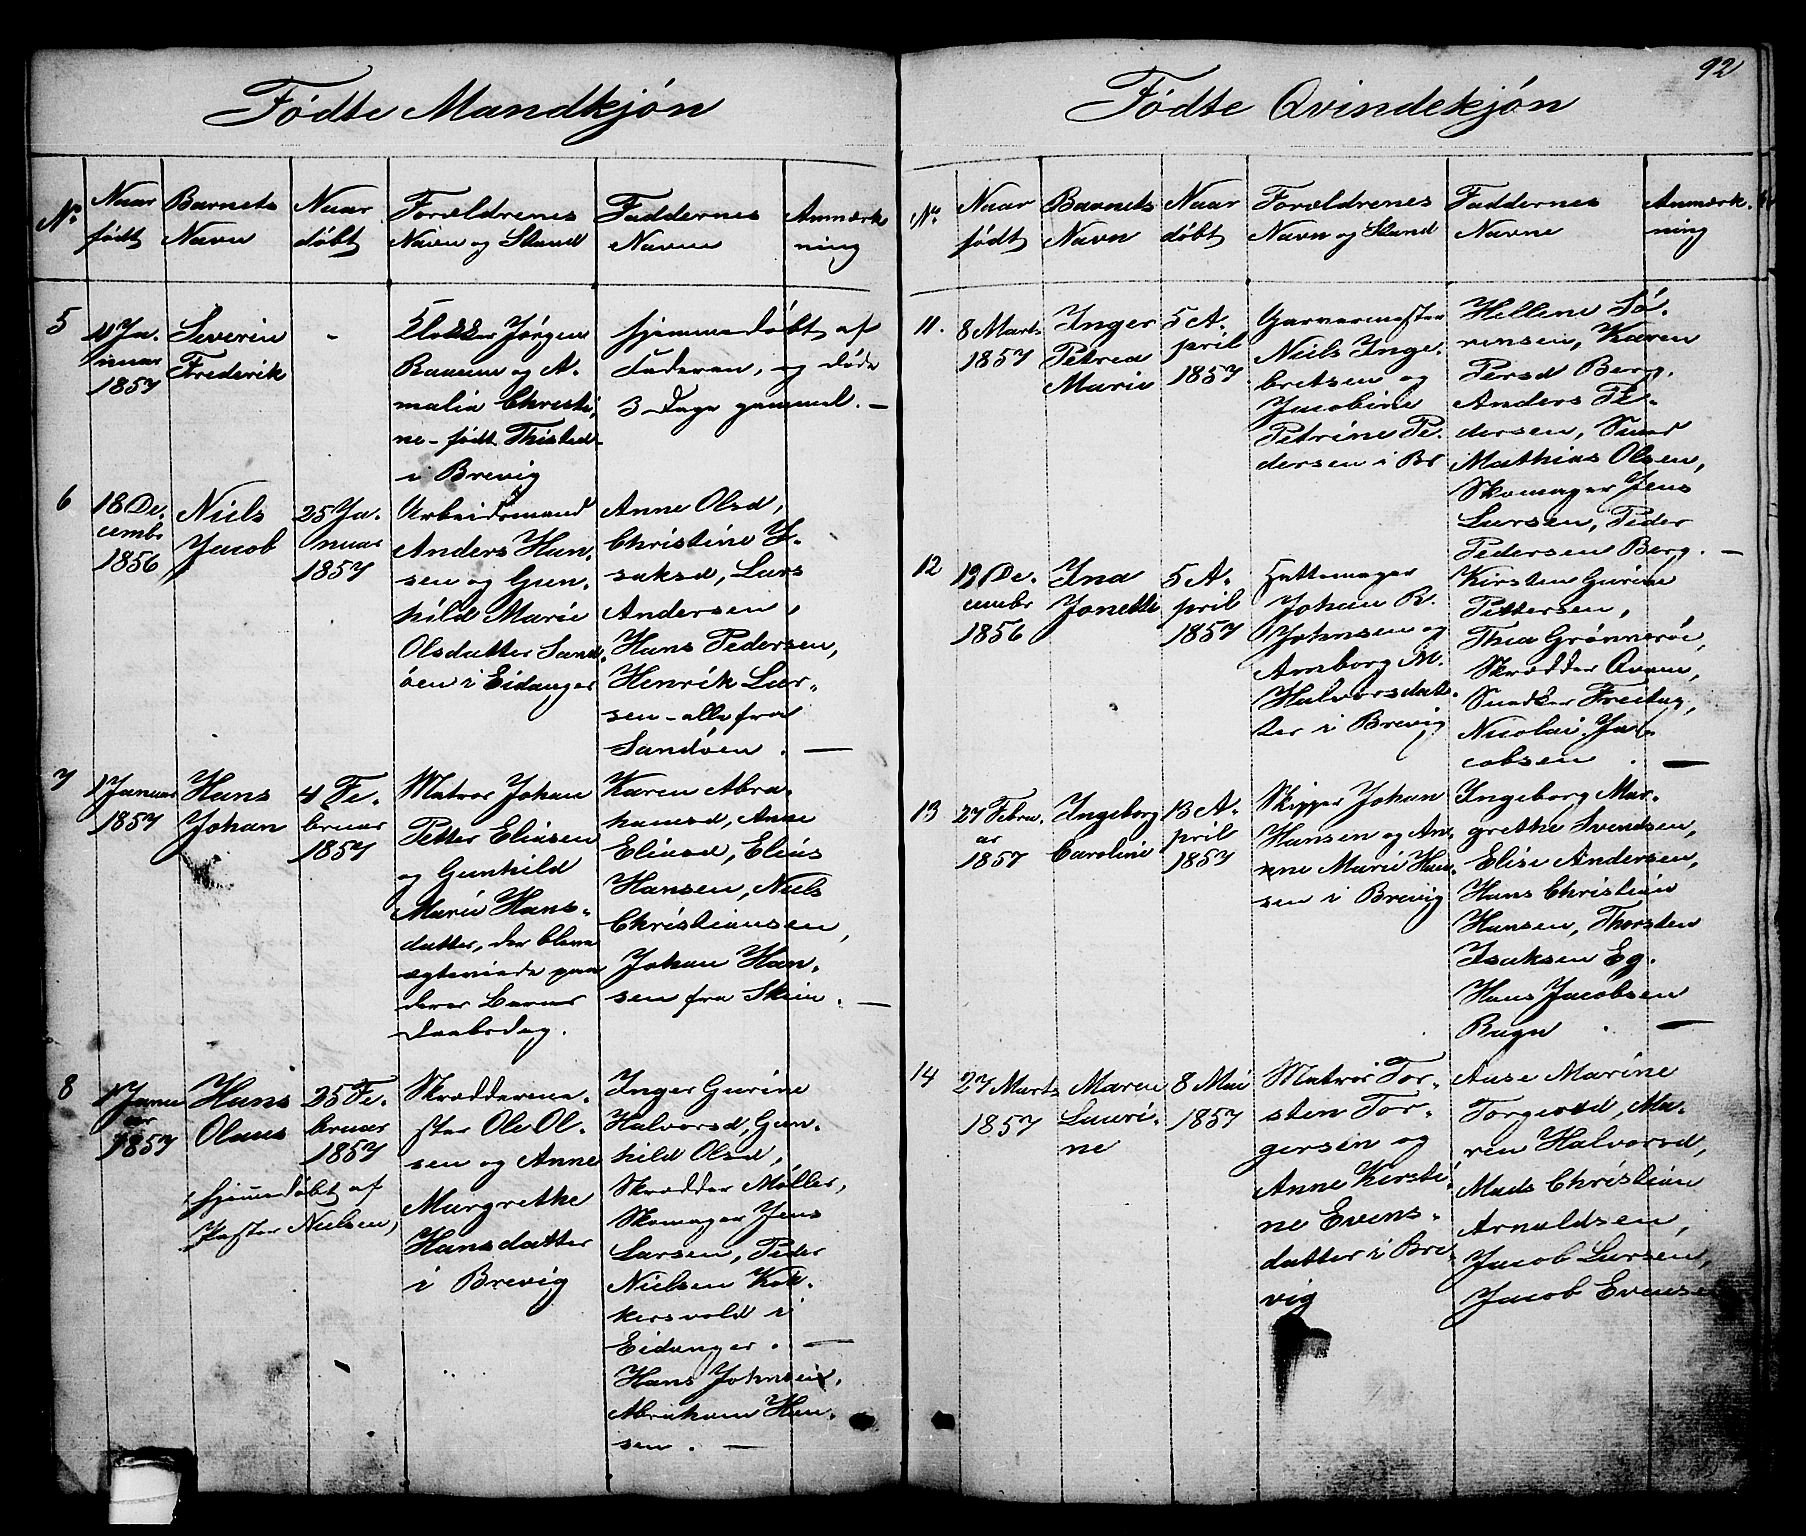 92
Fødte Mandkjøn
No
Naar født
Barnets Navn
Naar døbt
Forældrenes Navn og Stand
Faddernes Navne
Anmærkning
5
4 Ja-
nuar
1857
Severin
Frederik
-
Klokker Jørgen
Baassen og A-
malia Christi-
ne - født Thisted
i Brevig
hjemmedøbt af
Faderen, og døde
3 Dage gammel. -
6
18 De-
cembr
1856
Niels
Jacob
25 Ja-
nuar
1857
Arbeidsmand
Anders Han-
sen og Gun-
hild Marie
Olsdatter Sand-
øen i Eidanger
Anne Olsd,
Christine I-
saksd, Lars
Andersen,
Hans Pedersen,
Henrik Lar-
sen - alle fra
Sandøen. -
7
1 Januar
1857
Hans
Johan
4 Fe-
bruar
1857
Matros Johan
Petter Eliasen
og Gunhild
Marie Hans-
datter, der bleve
ægteviede paa
deres Barns
Daabsdag.
Karen Abra-
hamsd, Anne
Eliasd, Elias
Hansen, Niels
Christiansen,
Johan Han-
sen fra Skien. -
8
1 Janu
ar
1857
Hans
Olaus
hjemmedøbt af
Pastor Nielsen,
25 Fe-
bruar
1857
Skrædderme-
ster Ole Ol-
sen og Anne
Margrethe
Hansdatter
i Brevig
Inger Gurine
Halvorsd, Gun-
hild Olsd,
Skrædder Møller,
Skomager Jens
Larsen, Peder
Nielsen Kok-
kersvold i
Eidanger. -
Hans Johnsen,
Abraham Han-
sen. -
Fødte Qvindekjøn
No
Naar født
Barnets Navn
Naar døbt
Forældrenes Navn og Stand
Faddernes Navne
Anmærkning
11.
8 Marts
1857
Inger
Petrea
Marie
5 A-
pril
1857
Garvermester
Niels Inge-
bretsen og
Jacobine
Petrine Pe-
dersen i Br
Hellene Sø-
rensen, Karen
Persd Berg.
Anders Pe-
dersen,
Mathias Olsen,
Skomager Jens
Larsen, Peder
Pedersen Berg. -
12
12 De-
cembr
1856
Ina
Jonette
5 A-
pril
1857
Hattemager
Johan R.
Johnsen og
Amborg M.
Halvorsdat-
ter i Brevig
Kirsten Gurine
Pettersen,
Thea Grønnerøe,
Skrædder Qvam,
Snedker Freitag,
Nicolai Ja-
cobsen. -
13
27 Febru-
ar
1857
Ingeborg
Caroline
13 A-
pril
1857
Skipper Johan
Hansen og An-
nne Marie Han-
sen i Brevig
Ingeborg Mar-
grethe Svendsen,
Elise Andersen,
Hans Christian
Hansen, Thorsten
Isaksen Eg.
Hans Jacobsen
Bagn. -
14
27 Marts
1857
Maren
Lauri-
ne
8 Mai
1857
Matros Tor-
sten Tor-
gersen og
Anne Kirsti-
ne Evens-
datter i Bre-
vig
Aase Marine
Torgersd, Ma-
ren Halvorsd,
Mads Christian
Arnoldsen,
Jacob Larsen,
Jacob Evense